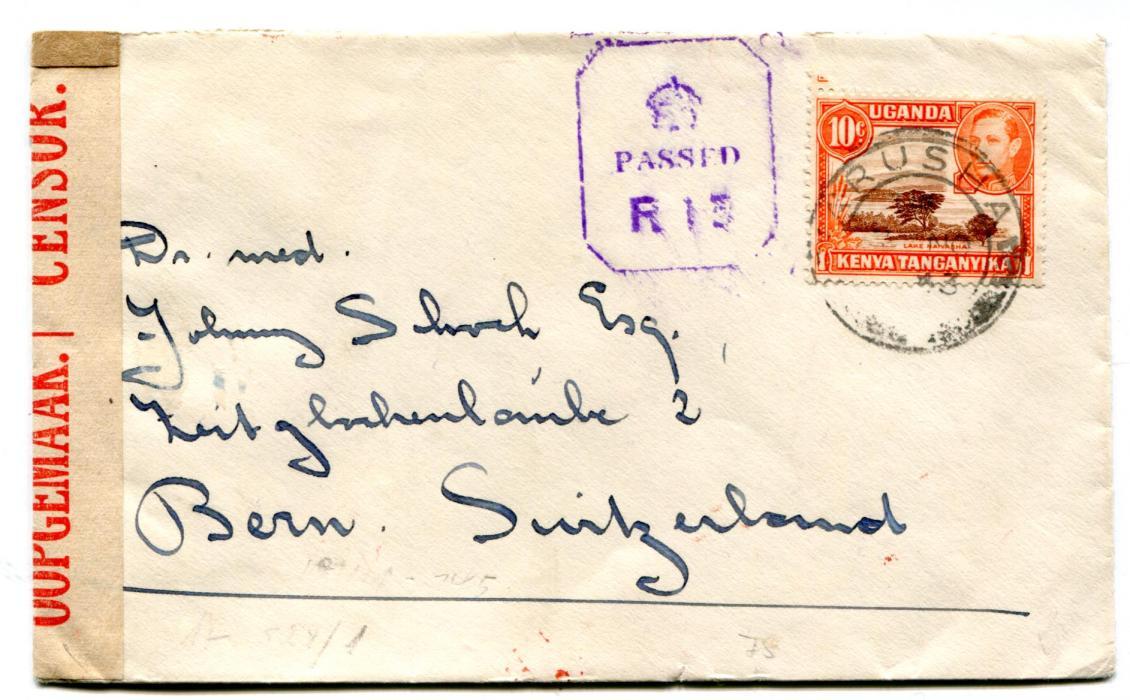 OOPGEMAAK. | CENSOR.
PASSED
R 13
10c UGANDA
LAKE NAIVASHA
1 KENYA TANGANYIKA 1
ARUSHA
43
Dr. med.
Johnny Schoch Esq.
Zeitglockenlaube 2
Bern. Switzerland